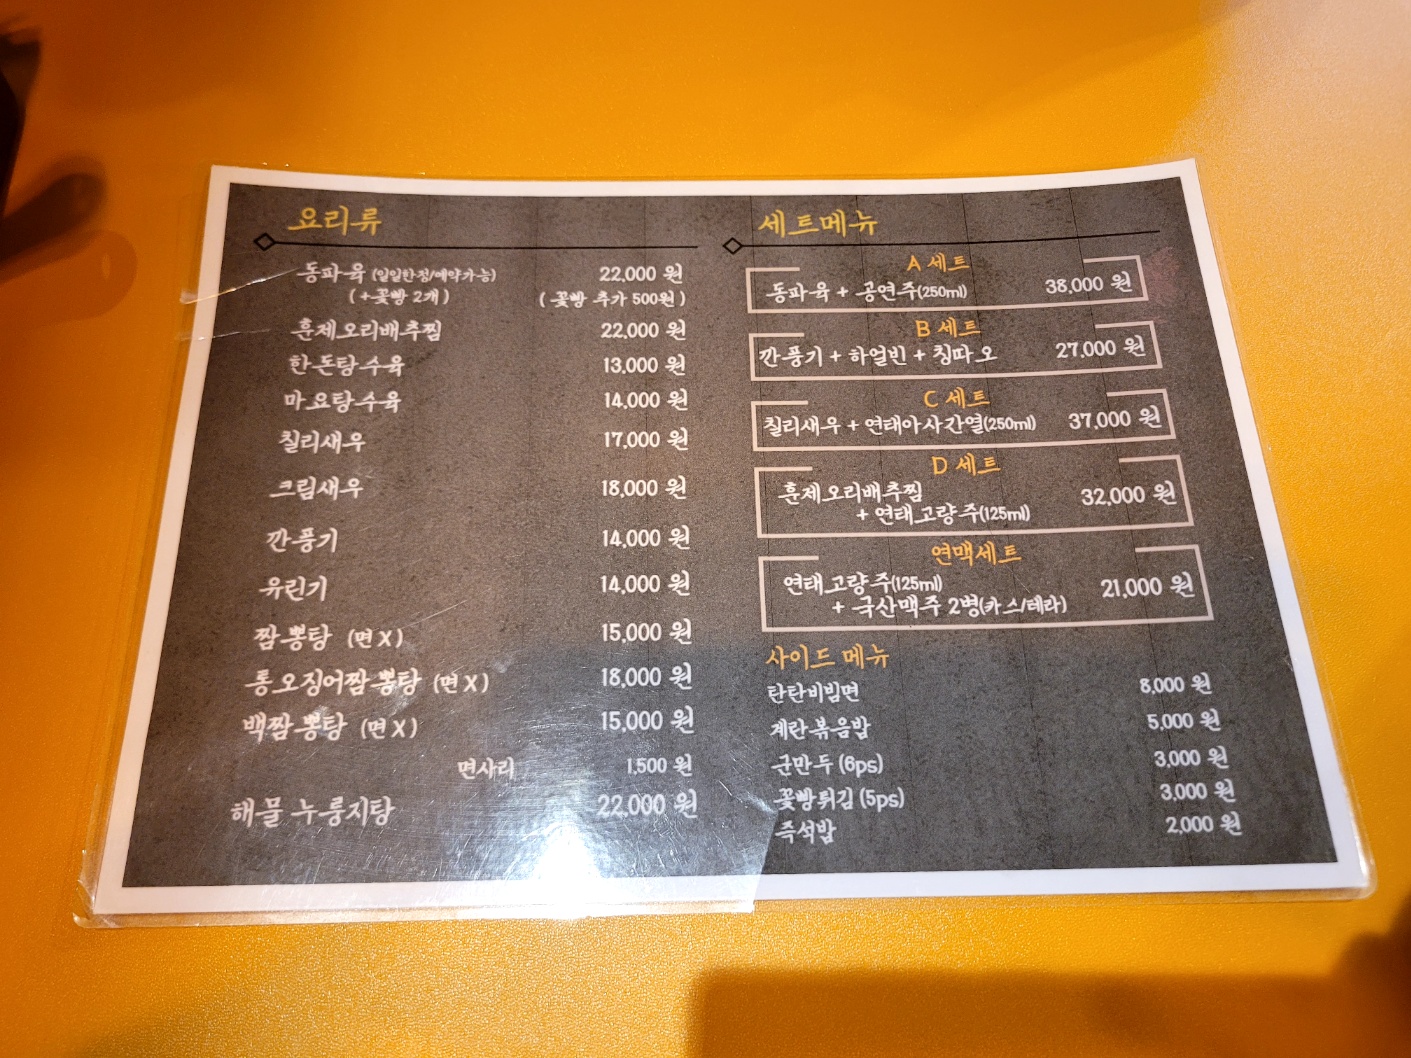 요리류
동파육 (일일한정/예약가능) 22,000 원
(+꽃빵 2개) (꽃빵 추가 500원)
훈제오리배추찜 22,000 원
한돈탕수육 13,000 원
마요탕수육 14,000 원
칠리새우 17,000 원
크림새우 18,000 원
깐풍기 14,000 원
유린기 14,000 원
짬뽕탕 (면X) 15,000 원
통오징어짬뽕탕 (면X) 18,000 원
백짬뽕탕 (면X) 15,000 원
면사리 1,500 원
해물 누룽지탕 22,000 원
세트메뉴
A 세트
동파육 + 공연주(250ml) 38,000 원
B 세트
깐풍기 + 하얼빈 + 칭따오 27,000 원
C 세트
칠리새우 + 연태아사간열(250ml) 37,000 원
D 세트
훈제오리배추찜 32,000 원
+ 연태고량주(125ml)
연맥세트
연태고량주(125ml) 21,000 원
+ 국산맥주 2병(카스/테라)
사이드 메뉴
탄탄비빔면 8,000 원
계란볶음밥 5,000 원
군만두 (6ps) 3,000 원
꽃빵튀김 (5ps) 3,000 원
즉석밥 2,000 원